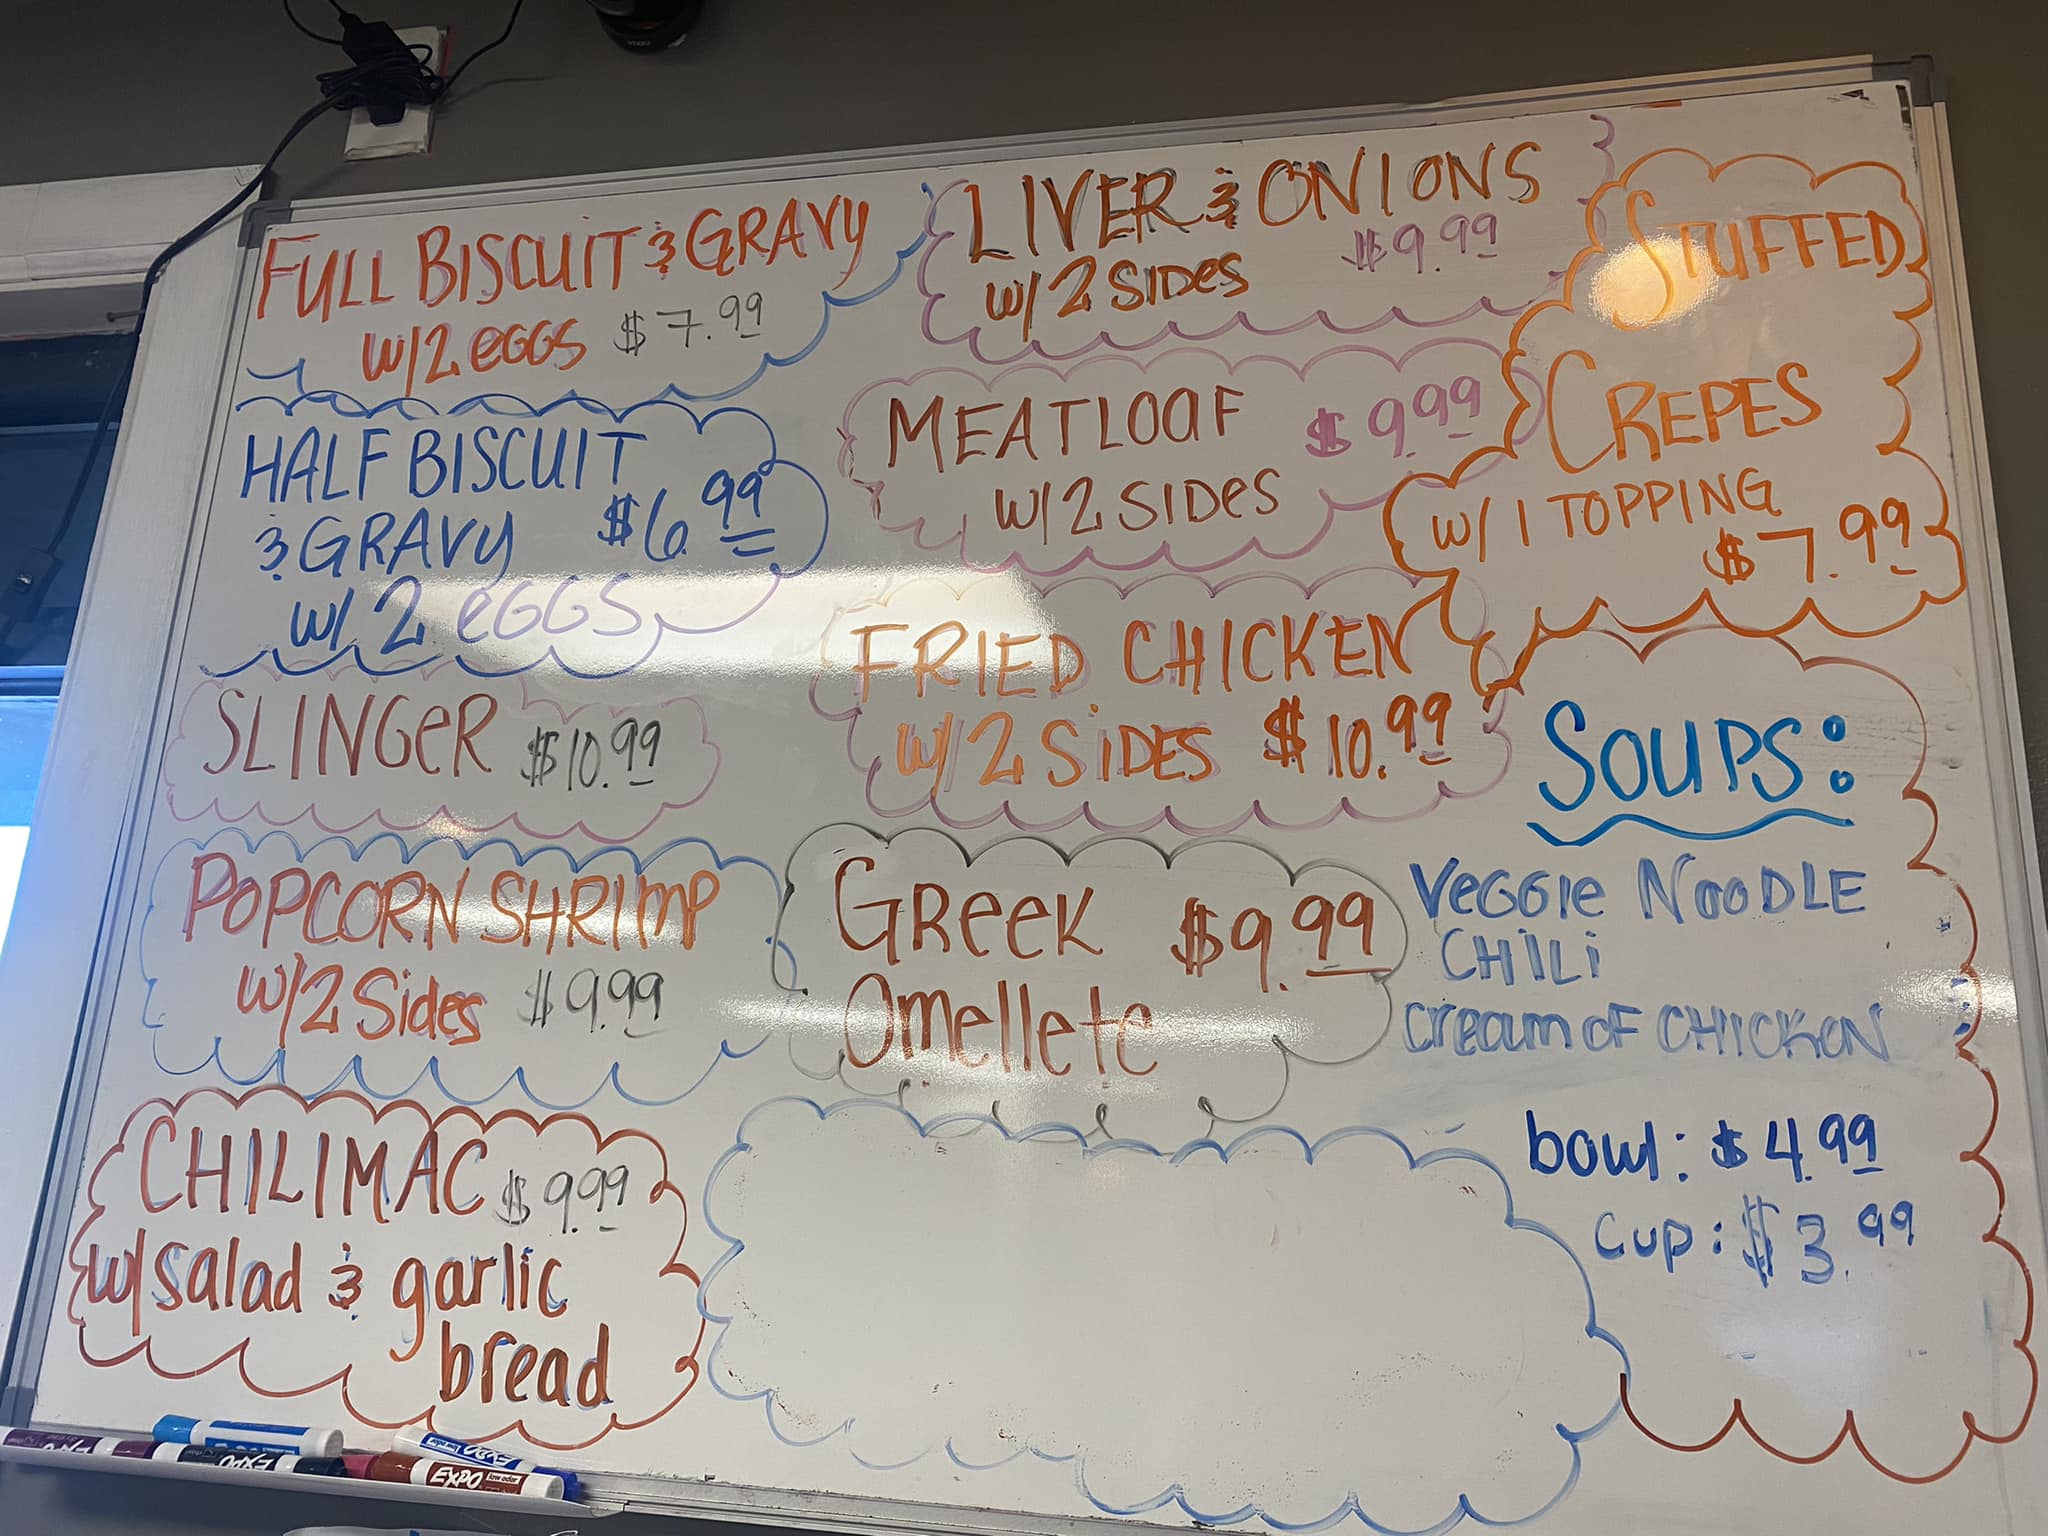 FULL BISCUIT & GRAVY
w/2 eGGS $7.99
HALF BISCUIT
& GRAVY $6.99
w/ 2 eGGS
SLINGeR $10.99
POPCORN SHRImP
w/2 Sides $9.99
CHILIMAC $9.99
w/salad & garlic
bread
LIVER & ONIONS
w/2 SIDes $9.99
MEATLOaF $9.99
w/2 SIDes
FRIED CHICKEN
w/2 SiDES $10.99
GReeK $9.99
Omellete
STUFFED
CREPES
w/ 1 TOPPING
$7.99
SOUPS:
VeGGIe NooDLE
CHiLi
cream oF CHICKeN
bowl: $4.99
cup: $3.99
EXPO
EXPO
EXPO
EXPO low odor